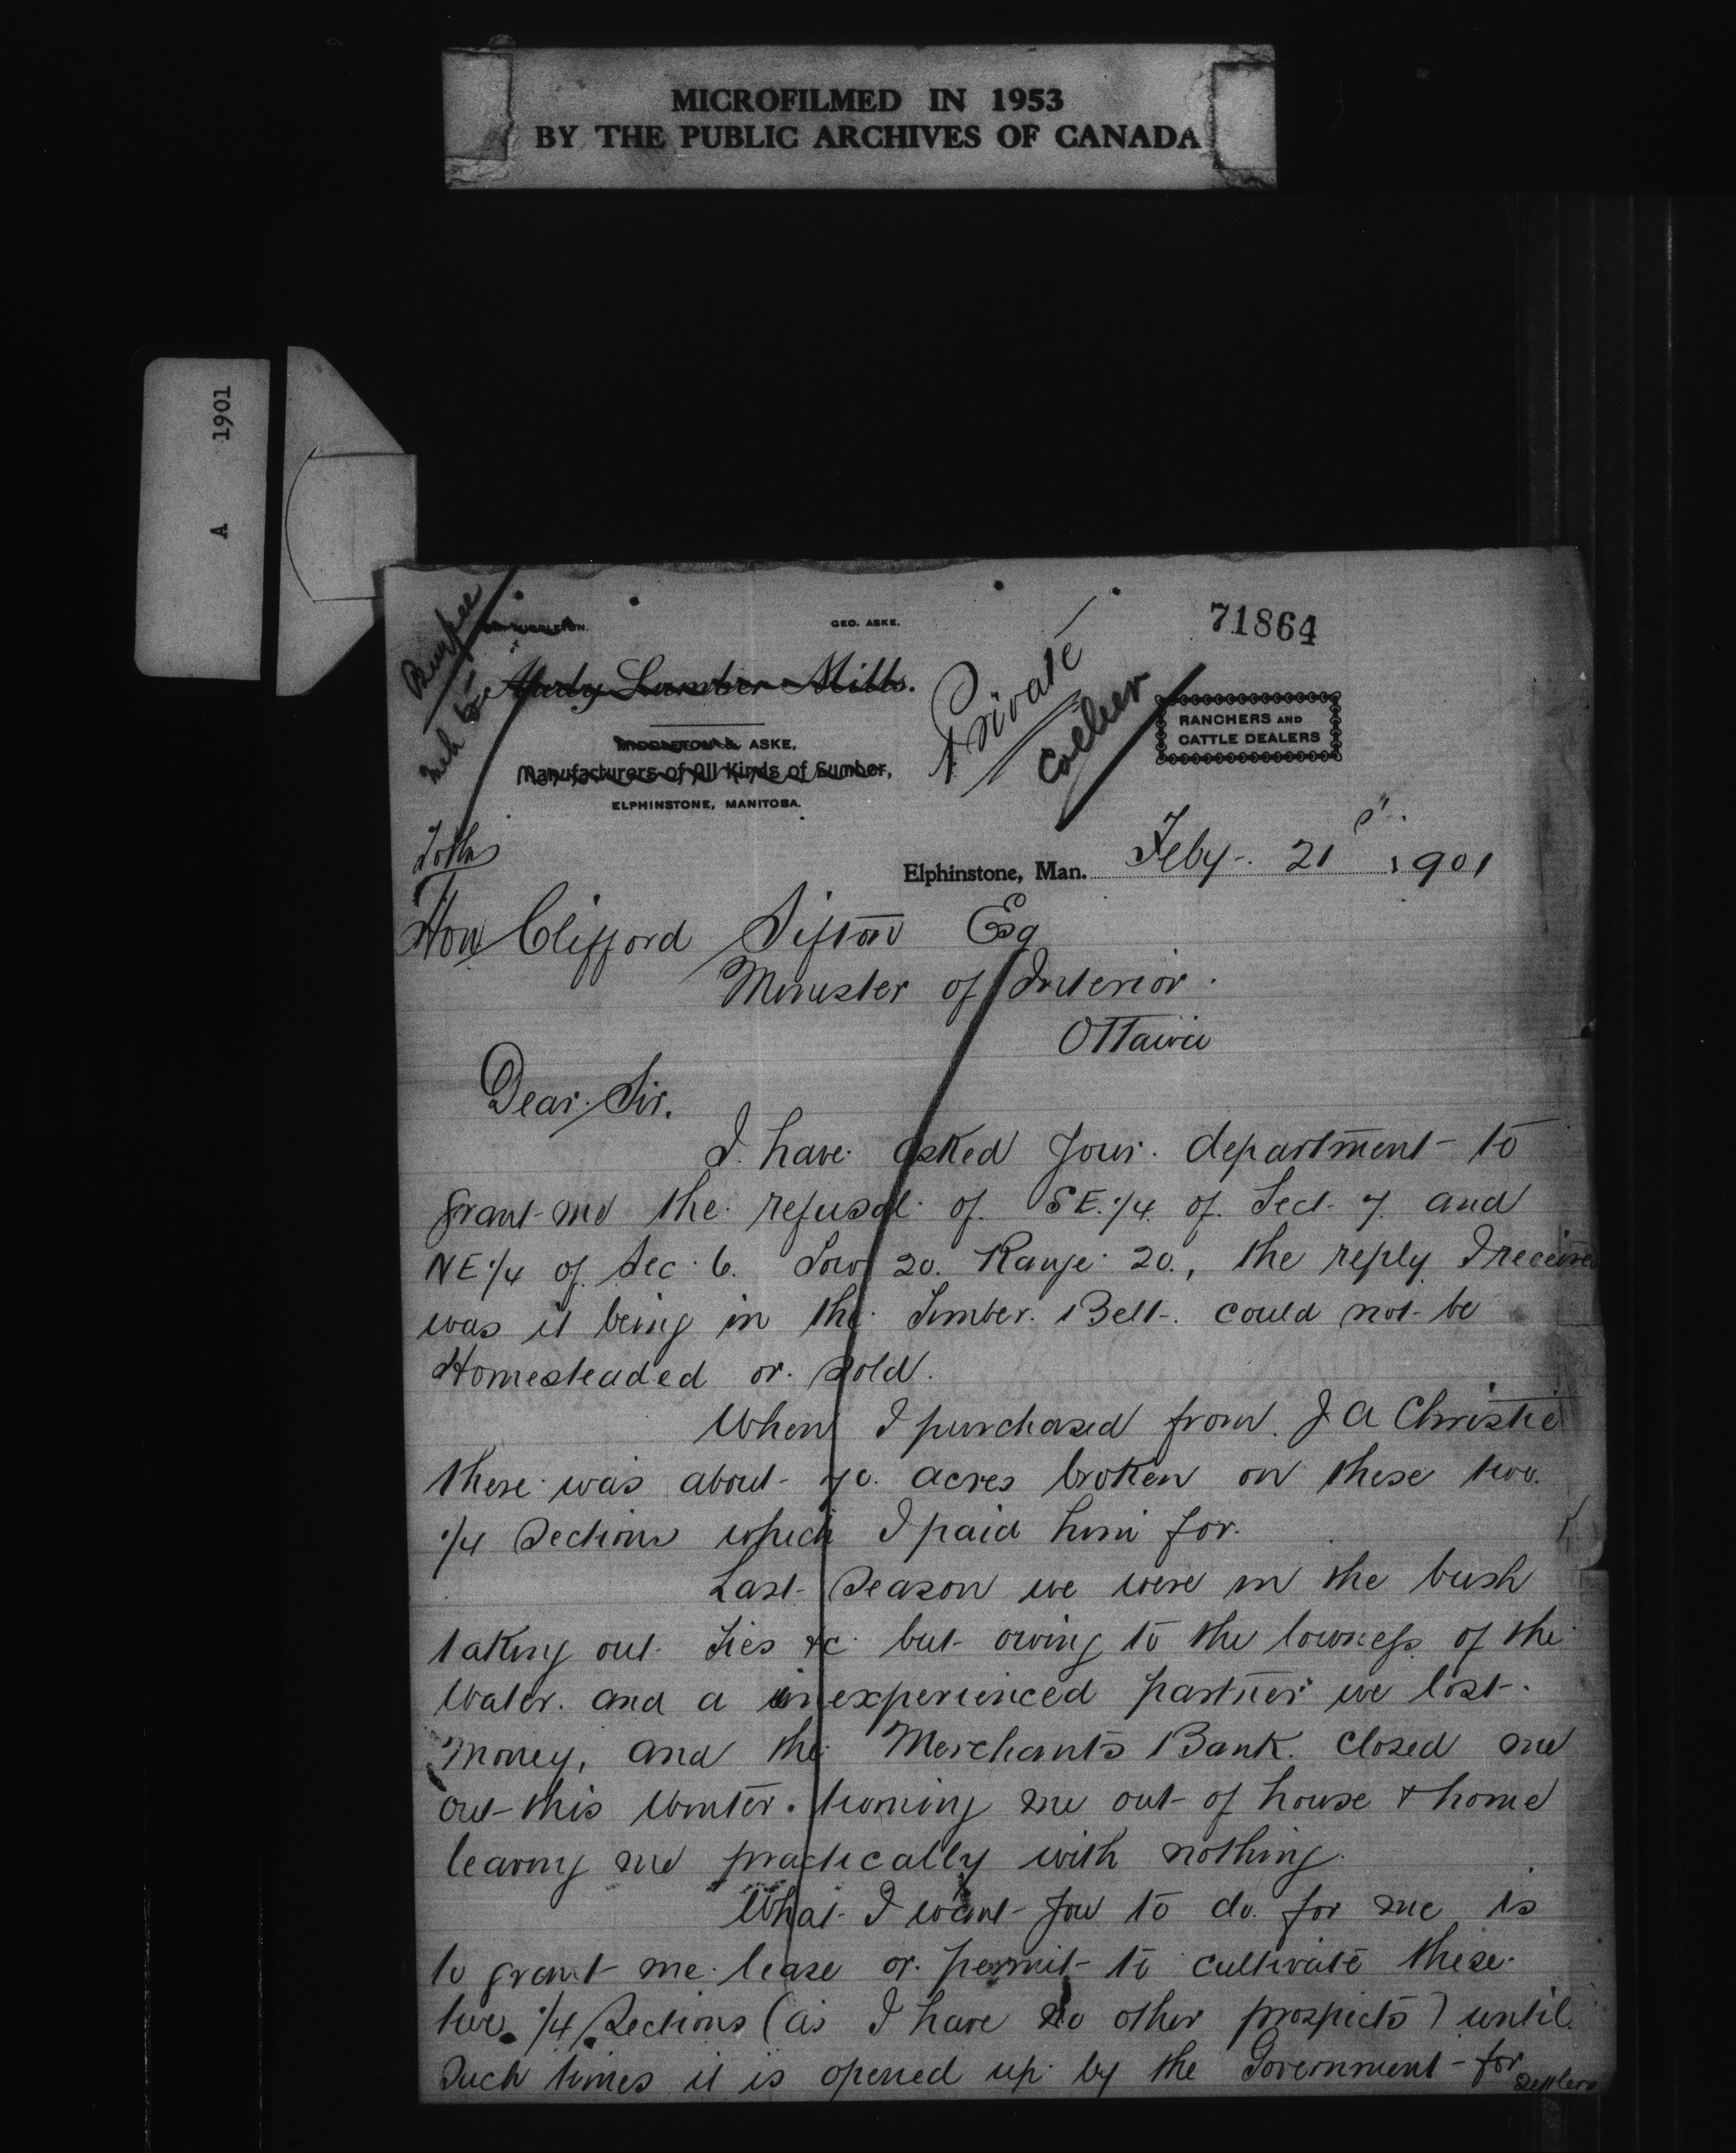 MICROFILMED IN 1953
BY THE PUBLIC ARCHIVES OF CANADA
1901
A
71864
GEO. ASKE.
Lumber Mills.
MIDDLETON & ASKE,
Manufacturers of All Kinds of Lumber,
ELPHINSTONE, MANITOBA.
Private
RANCHERS AND
CATTLE DEALERS
Elphinstone, Man. Feby. 21st. 1901
To the
Hon Clifford Sifton Esq
Minister of Interior.
Ottawa
Dear Sir.
I have asked your department to
grant me the refusal of SE. 1/4 of Sect. 7 and
NE 1/4 of Sec 6. Tow 20. Range 20., the reply I received
was it being in the Timber Belt. could not be
Homesteaded or sold.
When I purchased from J A Christie
there was about 70 acres broken on these two
1/4 Sections which I paid him for.
Last Season we were in the bush
taking out Ties &c but owing to the lowness of the
water and a inexperienced partner we lost
money, and the Merchants Bank closed me
out this Winter. turning me out of house & home
leaving me practically with nothing.
What I want you to do for me is
to grant me lease or permit to cultivate these
two 1/4 Sections (as I have no other prospects) until
such times it is opened up by the Government for
settlers